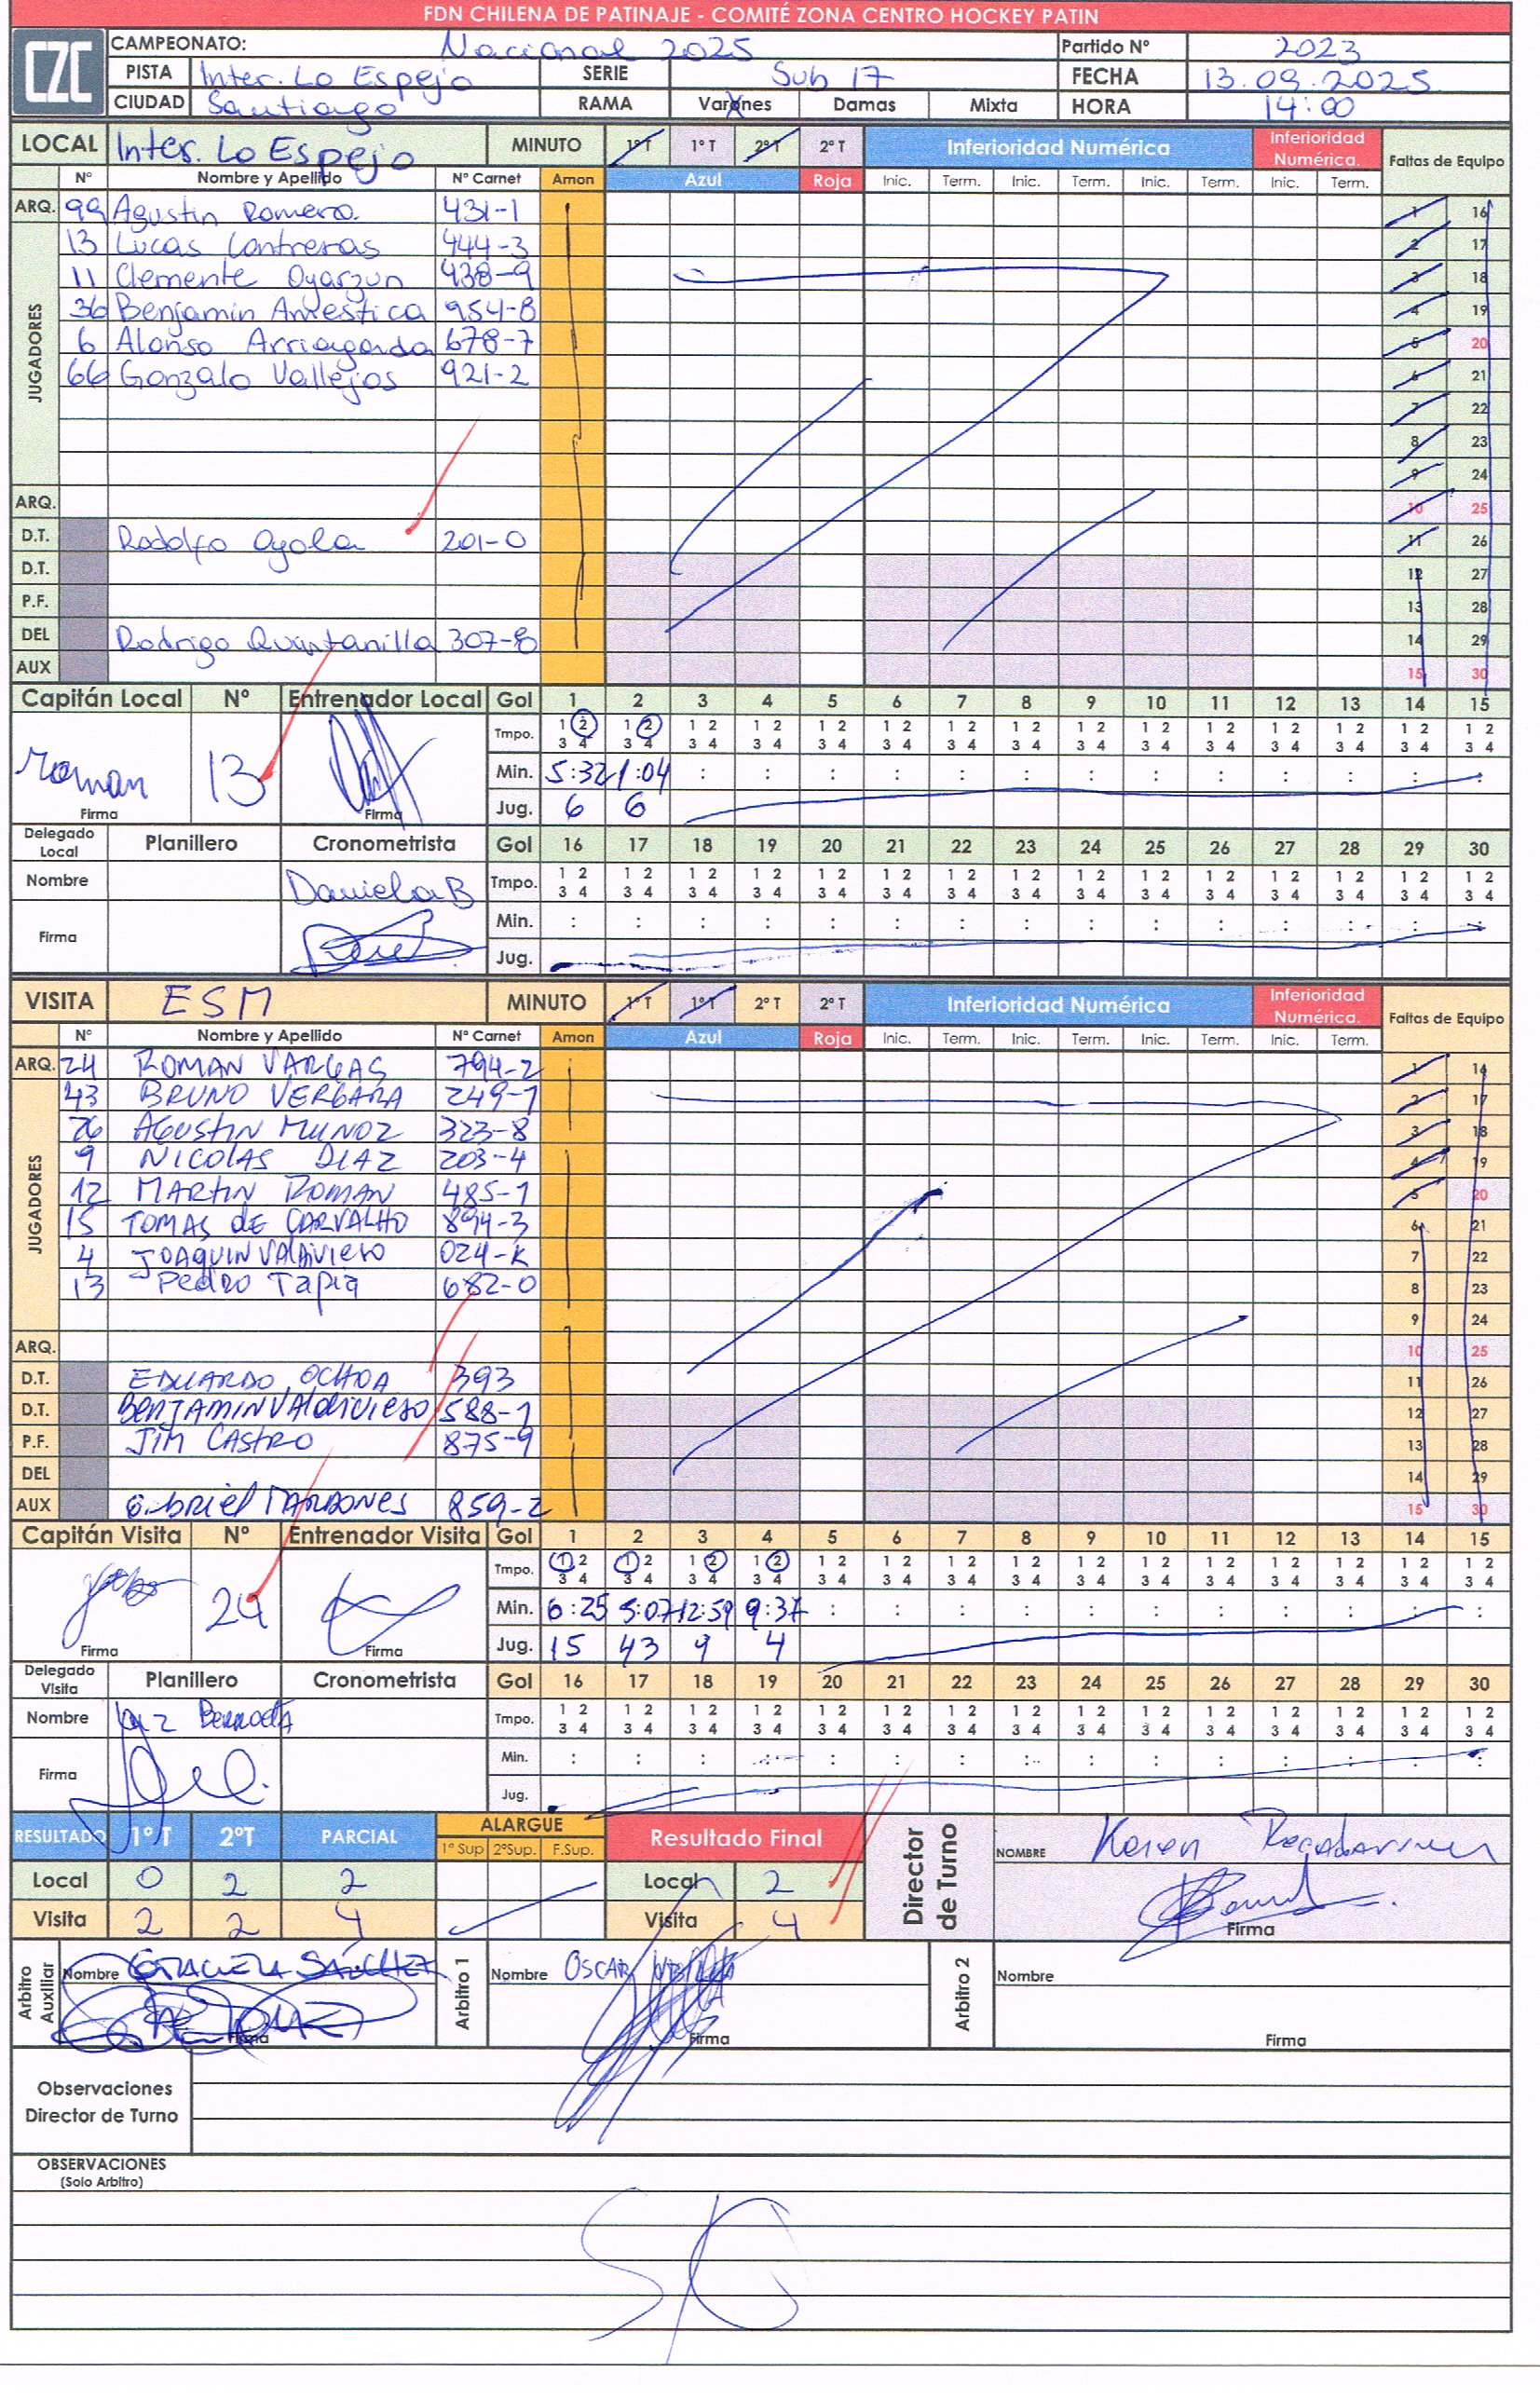 FDN CHILENA DE PATINAJE - COMITÉ ZONA CENTRO HOCKEY PATIN
CZC
CAMPEONATO: Nacional 2025 Partido Nº 2023
PISTA Inter. Lo Espejo SERIE Sub 17 FECHA 13.09.2025
CIUDAD Santiago RAMA Varones Damas Mixta HORA 14:00
LOCAL Inter. Lo Espejo MINUTO 1º T 1º T 2º T 2º T Inferioridad Numérica Inferioridad Numérica. Faltas de Equipo
Nº Nombre y Apellido Nº Carnet Amon Azul Roja Inic. Term. Inic. Term. Inic. Term. Inic. Term.
ARQ. 99 Agustin Romero 431-1 1 16
JUGADORES
13 Lucas Contreras 444-3 2 17
11 Clemente Oyarzun 438-9 3 18
36 Benjamin Amestica 954-8 4 19
6 Alonso Arriagada 678-7 5 20
66 Gonzalo Vallejos 921-2 6 21
7 22
8 23
9 24
ARQ. 10 25
D.T. Rodolfo Oyola 201-0 11 26
D.T. 12 27
P.F. 13 28
DEL Rodrigo Quintanilla 307-8 14 29
AUX 15 30
Capitán Local Nº Entrenador Local Gol 1 2 3 4 5 6 7 8 9 10 11 12 13 14 15
Tmpo. 1 2 1 2 1 2 1 2 1 2 1 2 1 2 1 2 1 2 1 2 1 2 1 2 1 2 1 2 1 2
3 4 3 4 3 4 3 4 3 4 3 4 3 4 3 4 3 4 3 4 3 4 3 4 3 4 3 4 3 4
13 Min. 5:32 1:04 : : : : : : : : : : : : :
Firma Firma Jug. 6 6
Delegado Local Planillero Cronometrista Gol 16 17 18 19 20 21 22 23 24 25 26 27 28 29 30
Nombre Daniela B Tmpo. 1 2 1 2 1 2 1 2 1 2 1 2 1 2 1 2 1 2 1 2 1 2 1 2 1 2 1 2 1 2
3 4 3 4 3 4 3 4 3 4 3 4 3 4 3 4 3 4 3 4 3 4 3 4 3 4 3 4 3 4
Firma Min. : : : : : : : : : : : : : : :
Jug.
VISITA ESM MINUTO 1º T 1º T 2º T 2º T Inferioridad Numérica Inferioridad Numérica. Faltas de Equipo
Nº Nombre y Apellido Nº Carnet Amon Azul Roja Inic. Term. Inic. Term. Inic. Term. Inic. Term.
ARQ. 24 ROMAN VARGAS 794-2 1 16
JUGADORES
43 BRUNO VERGARA 249-1 2 17
26 AGUSTIN MUNOZ 323-8 3 18
9 NICOLAS DIAZ 203-4 4 19
12 MARTIN ROMAN 485-1 5 20
15 TOMAS dE CARVALHO 894-3 6 21
4 JOAQUIN VALdIVIESO 024-K 7 22
13 PEdRO TAPIA 682-0 8 23
9 24
ARQ. 10 25
D.T. EDUARDO OCHOA 393 11 26
D.T. BENJAMIN VAldIVIESO 588-1 12 27
P.F. JIM CASTRO 875-9 13 28
DEL 14 29
AUX GabriEl MARDONES 859-2 15 30
Capitán Visita Nº Entrenador Visita Gol 1 2 3 4 5 6 7 8 9 10 11 12 13 14 15
Tmpo. 1 2 1 2 1 2 1 2 1 2 1 2 1 2 1 2 1 2 1 2 1 2 1 2 1 2 1 2 1 2
3 4 3 4 3 4 3 4 3 4 3 4 3 4 3 4 3 4 3 4 3 4 3 4 3 4 3 4 3 4
24 Min. 6:25 5:07 12:59 9:37 : : : : : : : : : : :
Firma Firma Jug. 15 43 9 4
Delegado Visita Planillero Cronometrista Gol 16 17 18 19 20 21 22 23 24 25 26 27 28 29 30
Nombre BERROETA Tmpo. 1 2 1 2 1 2 1 2 1 2 1 2 1 2 1 2 1 2 1 2 1 2 1 2 1 2 1 2 1 2
3 4 3 4 3 4 3 4 3 4 3 4 3 4 3 4 3 4 3 4 3 4 3 4 3 4 3 4 3 4
Firma Min. : : : : : : : : : : : : : : :
Jug.
RESULTADO 1º T 2ºT PARCIAL ALARGUE Resultado Final Director de Turno
1º Sup 2ºSup. F.Sup. NOMBRE Karen Recabarren
Local 0 2 2 Local 2
Visita 2 2 4 Visita 4 Firma
Arbitro Auxiliar Nombre GRACIELA SANCHEZ Arbitro 1 Nombre OSCAR Arbitro 2 Nombre
Firma Firma Firma
Observaciones
Director de Turno
OBSERVACIONES
(Solo Arbitro)